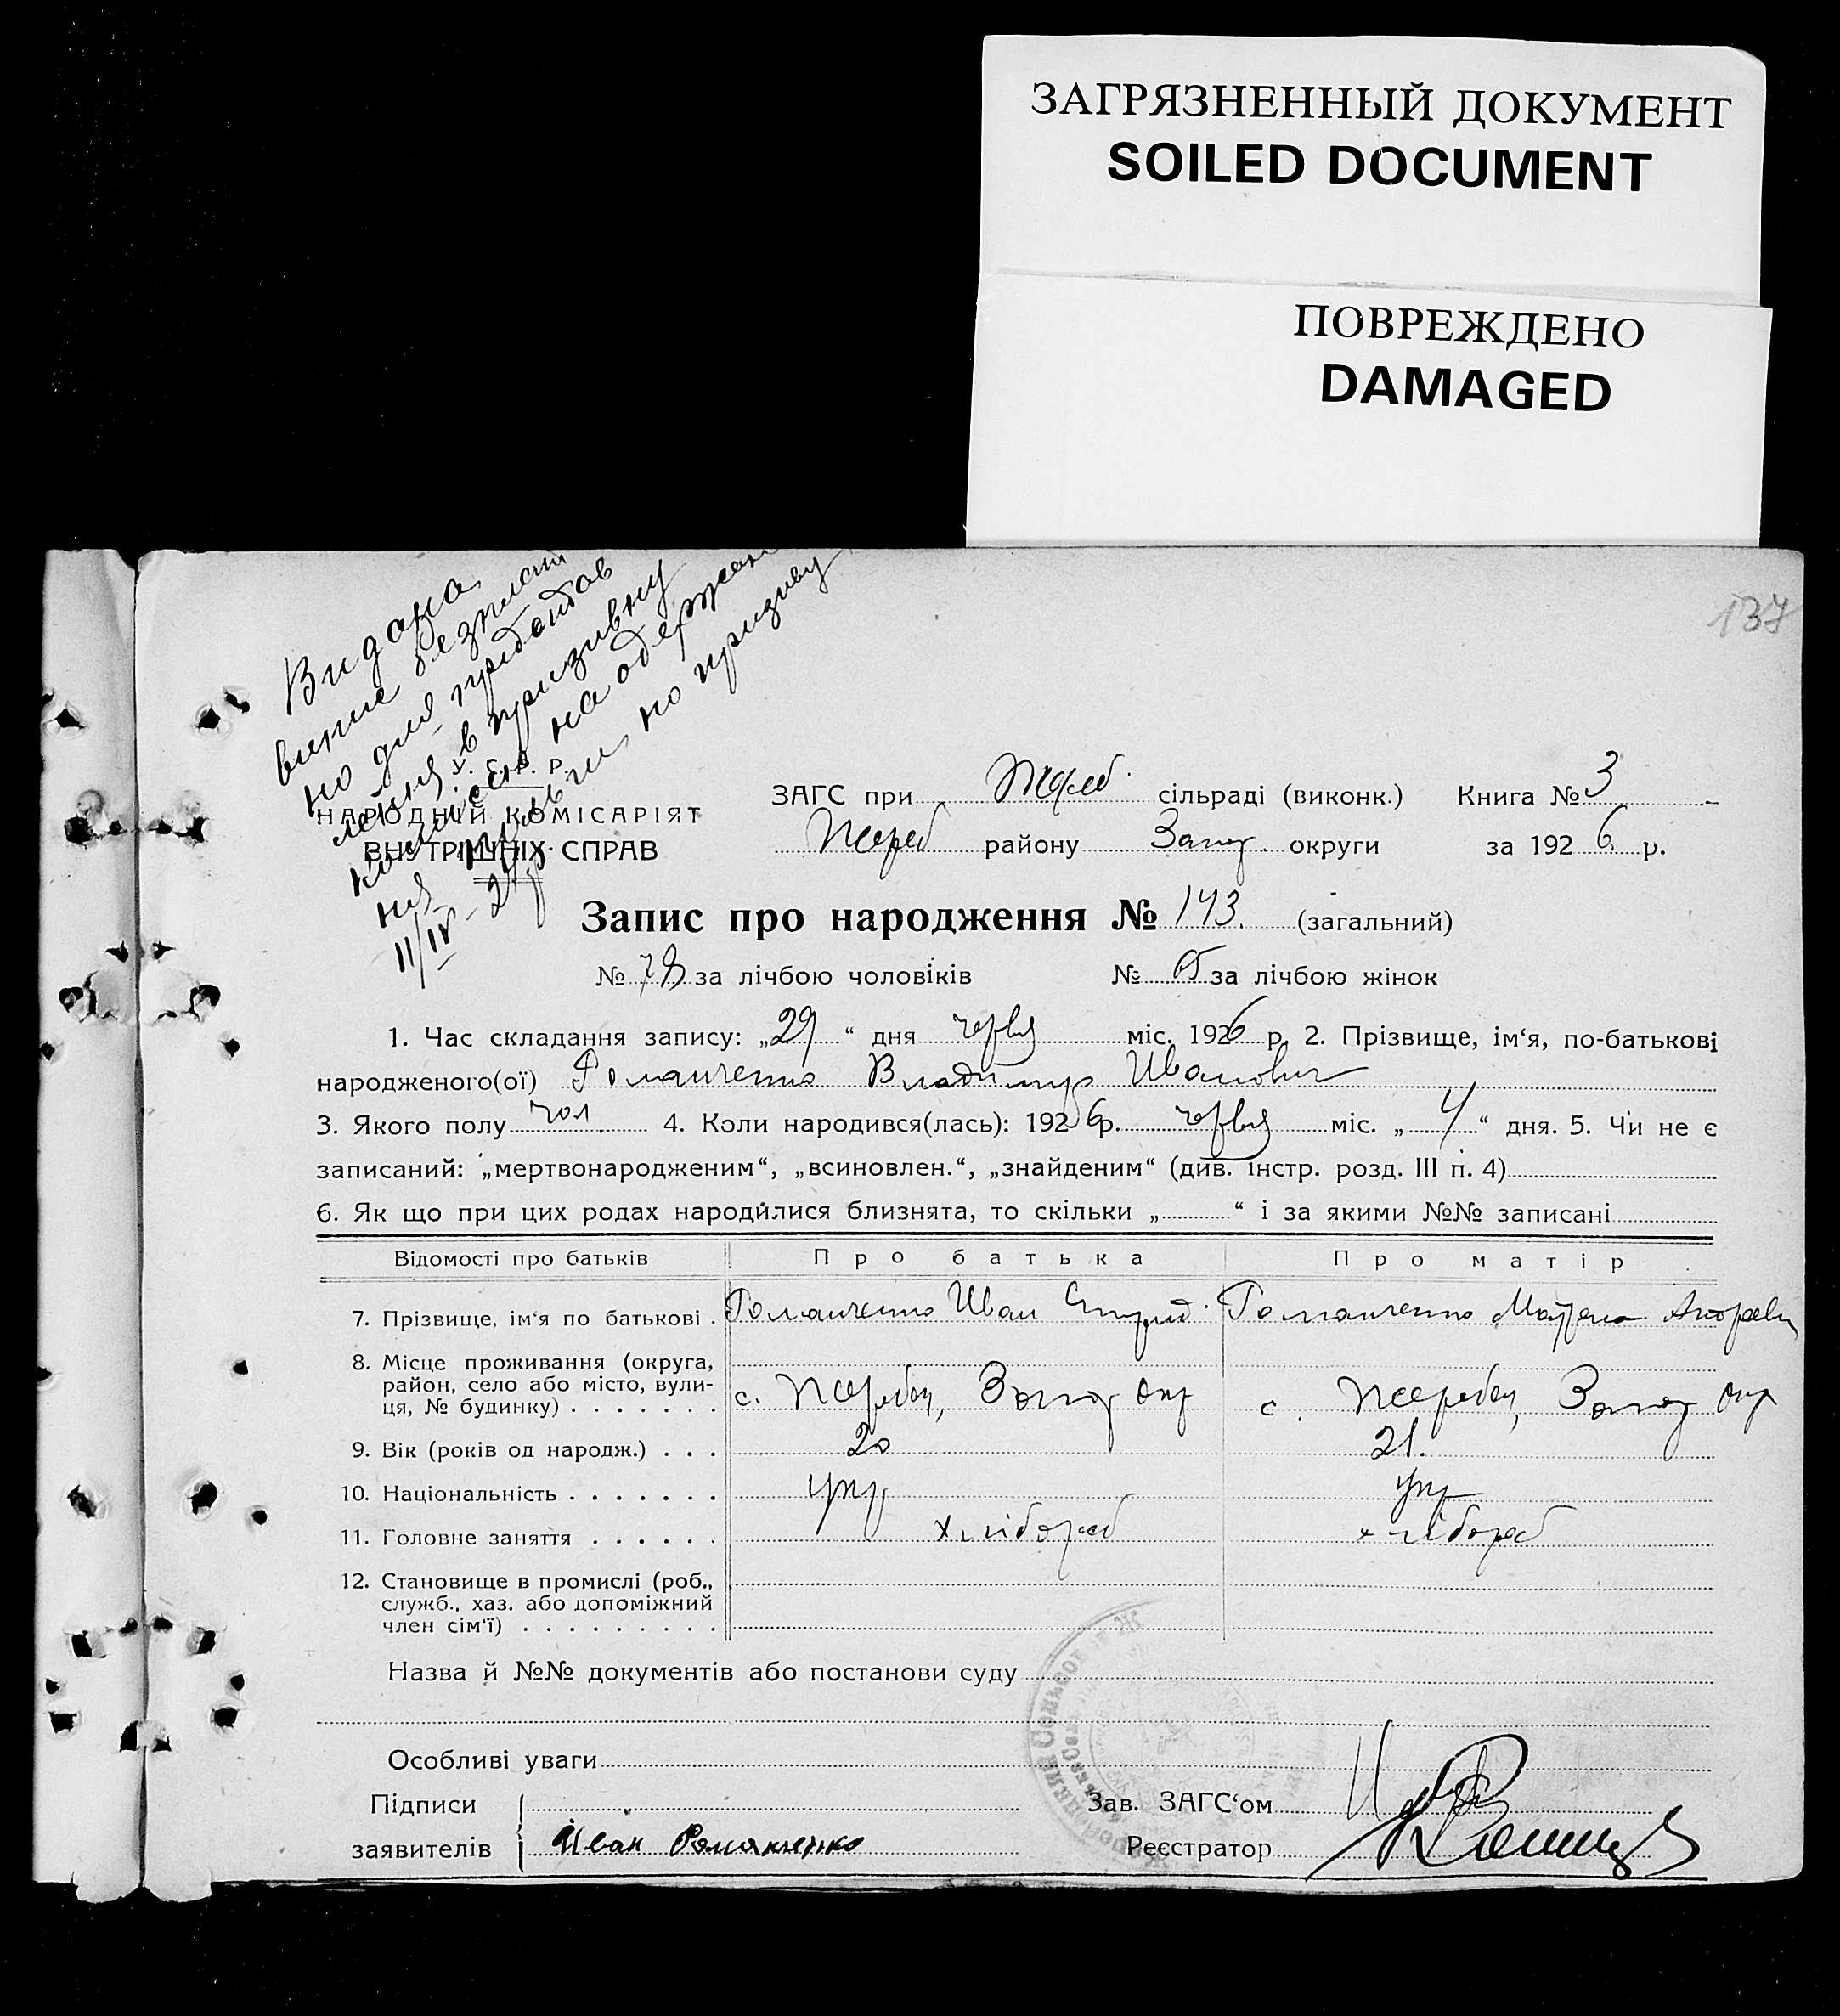 ЗАГРЯЗНЕННЫЙ ДОКУМЕНТ
SOILED DOCUMENT
ПОВРЕЖДЕНО
DAMAGED
137
Видана
випис безплат
но для
в призивну
на одержан
по призиву
11/IV
У. С. Р. Р.
НАРОДНІЙ КОМІСАРІЯТ
ВНУТРІШНІХ СПРАВ
ЗАГС при Жереб. сільраді (виконк.) Книга № 3
Жереб району Запор. округи за 1926 р.
Запис про народження № 143. (загальний)
№ 78 за лічбою чоловіків № 65 за лічбою жінок
1. Час складання запису: „29“ дня червня міс. 1926 р. 2. Прізвище, ім‘я, по-батькові
народженого(ої) Романченко Владимир Иванович
3. Якого полу чол. 4. Коли народився(лась): 1926 р. червня міс. „4“ дня. 5. Чи не є
записаний: „мертвонародженим“, „всиновлен.“, „знайденим“ (див. інстр. розд. III п. 4)
6. Як що при цих родах народилися близнята, то скільки „ “ і за якими №№ записані
Відомості про батьків Про батька Про матір
7. Прізвище, ім‘я по батькові . Романченко Иван Романченко
8. Місце проживання (округа,
район, село або місто, вули-
ця, № будинку) . . . . . . . с. Жеребец, Запор окр с. Жеребец, Запор окр
9. Вік (років од народж.) . . . 20 21.
10. Національність . . . . . . . укр укр
11. Головне заняття . . . . . . хлібороб хлібороб
12. Становище в промислі (роб.,
служб., хаз. або допоміжний
член сім‘ї) . . . . . . . . .
Назва й №№ документів або постанови суду
Особливі уваги
Підписи
заявителів Иван Романченко
Зав. ЗАГС‘ом
Реєстратор